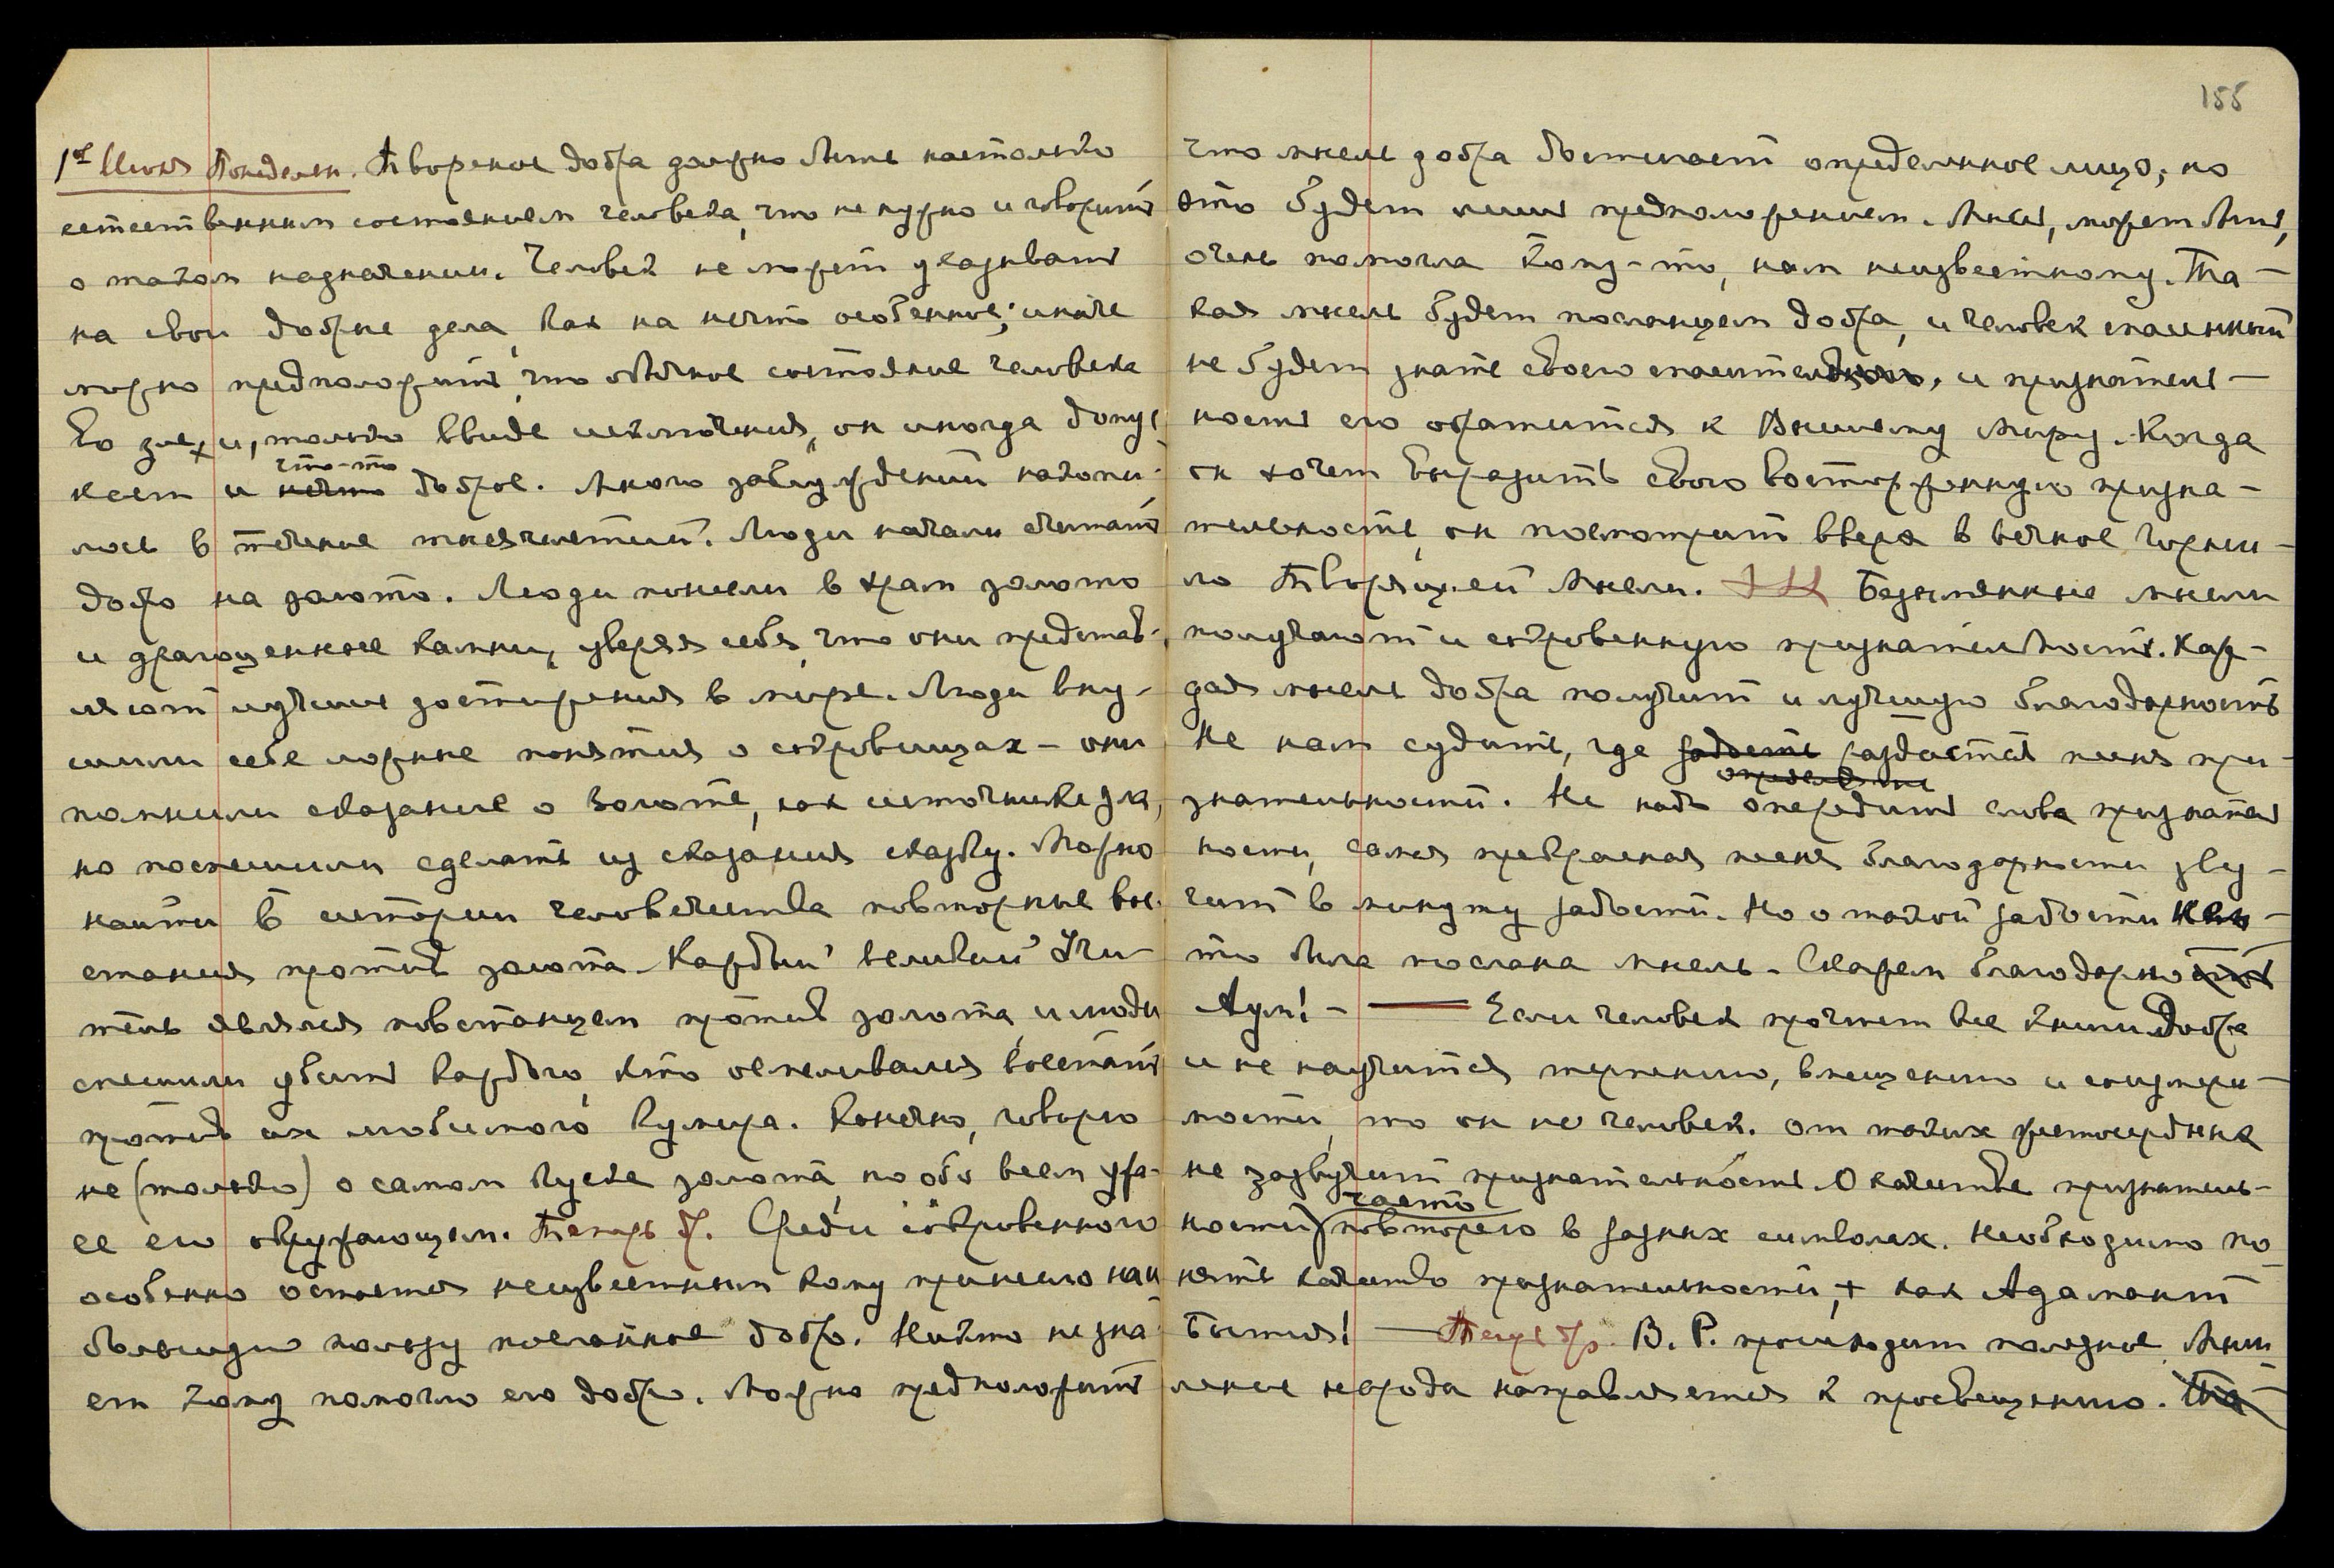 1ое Июня Понедельн. Творение добра должно быть настолько
естественным состоянием человека, что не нужно и говорить
о таком назначении. Человек не может указывать
на свои добрые дела, как на нечто особенное; иначе
можно предположить, что обычное состояние человека
во зле, и, только ввиде исключения, он иногда допус-
что-то
кает и нечто доброе. Много заблуждений накопи-
лось в течение тысячелетий. Люди начали считать
добро на золото. Люди понесли в храм золото
и драгоценные камни, уверяя себя, что они представ-
ляют лучшие достижения в мире. Люди вну-
шили себе ложные понятия о сокровищах – они
помнили сказание о золоте, как источнике зла,
но поспешили сделать из сказания сказку. Можно
найти в истории человечества повторные вос-
стания против золота. Каждый великий Учи-
тель являлся повстанцем против золота, и люди
спешили убить каждого, кто осмеливался восстать
против их любимого кумира. Конечно, говорю
не (только) о самом куске золота, но обо всем ужа-
се его окружающем. Теперь др. Среди сокровенного
особенно остается неизвестным кому принесло наи-
большую пользу посланное добро. Никто не зна-
ет кому помогло его добро. Можно предположить
155
что мысль добра достигает определенное лицо, но
это будет лишь предположением. Мысль, может быть,
очень помогла кому-то, нам неизвестному. Та-
кая мысль будет посланцем добра, и человек спасенный
не будет знать своего спасителя, и признатель-
ность его обратится к Высшему Миру. Когда
он хочет выразить свою восторженную призна-
тельность, он посмотрит вверх в вечное горни-
ло Творящей Мысли. Безымянные мысли
получают и сокровенную признательность. Каж-
дая мысль добра получит и лучшую благодарность
Не нам судить, где радость раздастся песня при-
знательности. Не надо опередить слова признатель
ности, самая прекрасная песня благодарности зву-
чит в минуту радости. Но о такой радости
то была послана мысль. Скажем благодарность
Аум! – — Если человек прочтет все книги Добра
и не научится терпению, вмещению и соизмери-
мости, то он не человек. От таких жестосердных
не зазвучит признательность. О качестве признатель-
часто
ности повторяю в разных символах. Необходимо по-
нять качество признательности, + как Адамант
Бытия! — Теперь др. В. Р. происходит полезное. Мыш-
ление народа направляется к просвещению. Та-